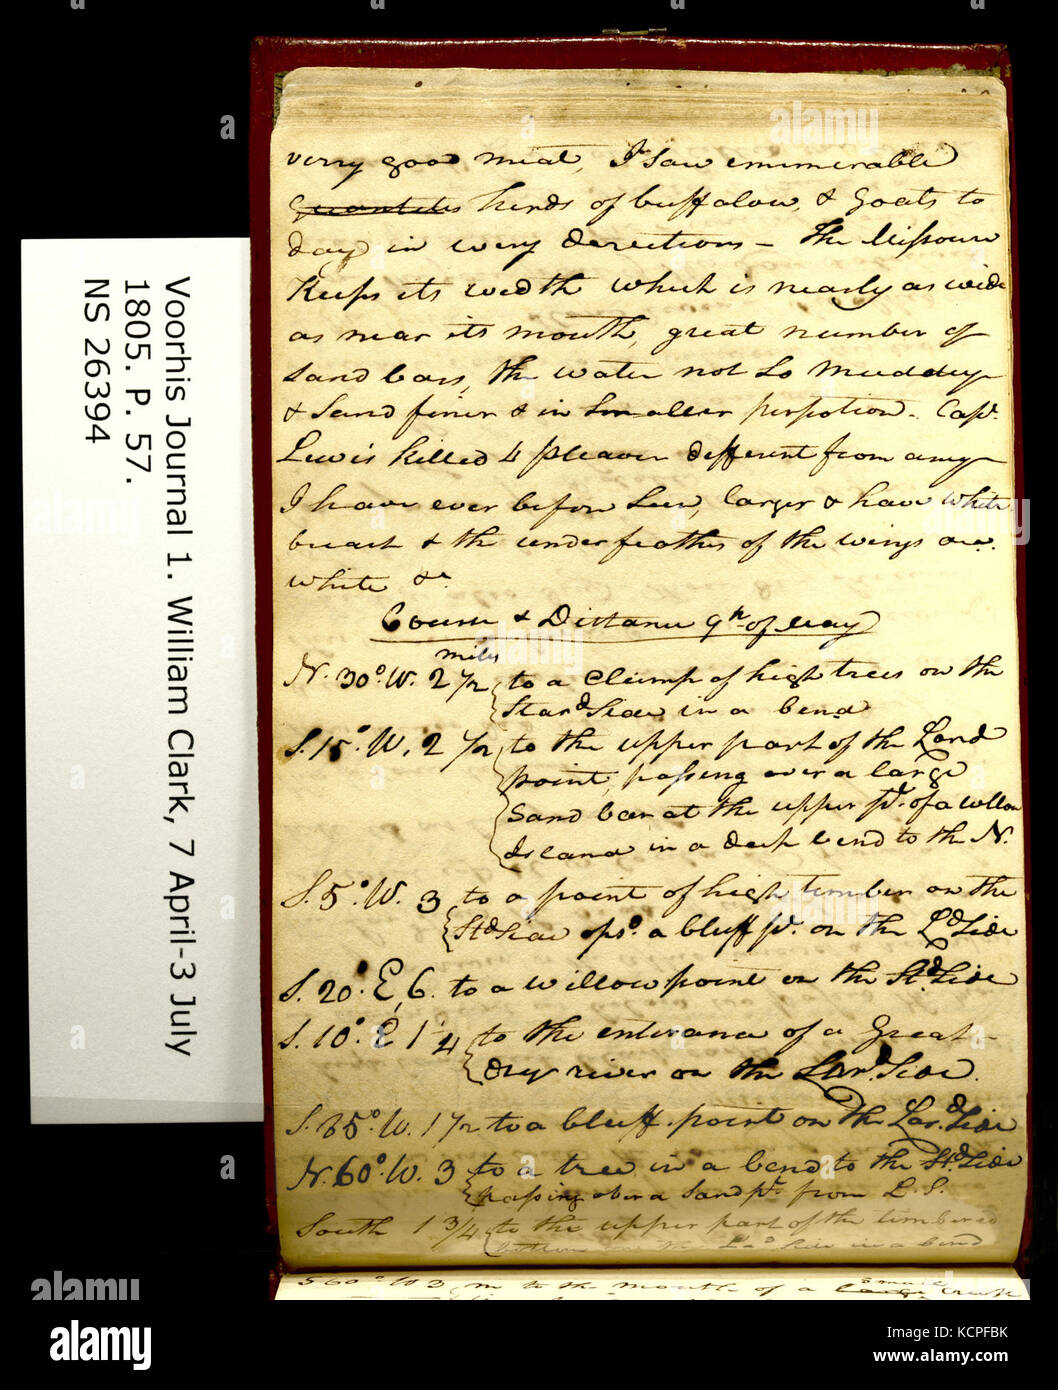 verry good meat, I saw enumerable
quantites herds of buffalow, & goats to
day in every derections — The Missouri
Keeps its width which is nearly as wide
as near its mouth, great number of
sand bars, the water not So muddy
& Sand finer & in Smaller perpotion. Capt.
Lewis killed 4 pleaver different from any
I have ever before Seen, larger & have white
breast & the underfeathers of the wings are
white &c.
Course & Distance 9th of May
miles
N. 30° W. 2 1/2 to a Clump of high trees on the
Stard Side in a bend
S. 15° W. 2 1/2 to the upper part of the Lard
point, passing over a large
Sand bar at the upper pt. of a willow
Island in a deep bend to the N.
S. 5° W. 3 to a point of high timber on the
Std Side opsd. a bluff pt. on the Ld Side
S. 20° E 6 to a willow point on the Std. Side
S. 10° E 1 1/4 to the enterance of a great
dry river on the Lard. Side.
S. 85° W. 1 1/2 to a bluff point on the Lard. Side
N. 60° W. 3 to a tree in a bend to the Std Side
passing over a Sand pt. from L. S.
South 1 3/4 to the upper part of the timbered
bottom on the Lad Side in a bend
S 60° W 3 m to the mouth of a large Creek
Small
Voorhis Journal 1. William Clark, 7 April-3 July
1805. P. 57.
NS 26394
alamy
a
Image ID: KCPFBK
www.alamy.com